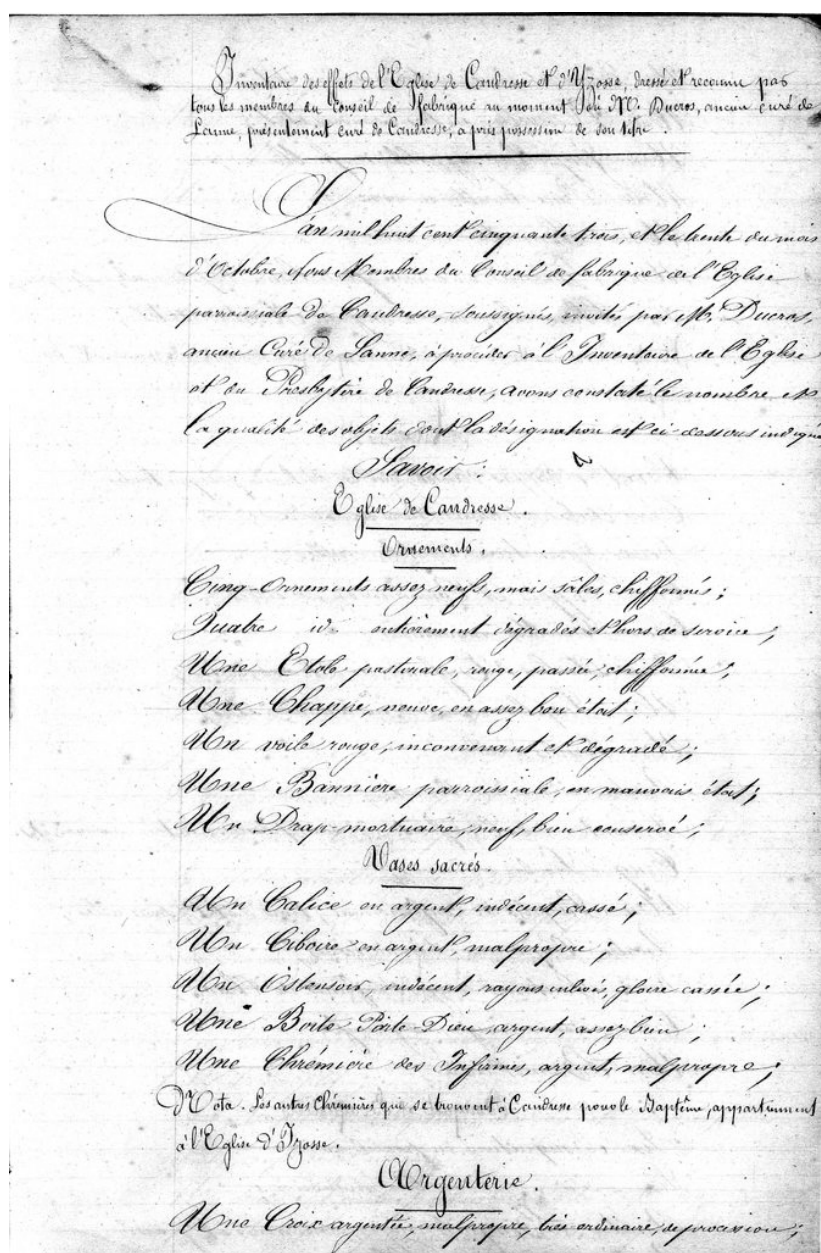 Inventaire des effets de l'Eglise de Candresse et d'Yzosse, dressé et reconnu par
tous les membres du Conseil de fabrique au moment où Mr. Ducros, ancien curé de
Lanne, présentement curé de Candresse, a pris possession de son titre.
L'an mil huit cent cinquante trois, et le trente du mois
d'Octobre, Nous Membres du Conseil de fabrique de l'Eglise
parroissiale de Candresse, soussignés, invités par M. Ducros,
ancien Curé de Lanne, à procéder à l'Inventaire de l'Eglise
et du Presbytère de Candresse, avons constaté le nombre et
la qualité des objets dont la désignation est ci-dessous indiquée
Savoir :
Eglise de Candresse.
Ornements.
Cinq Ornements assez neufs, mais sâles, chiffonnés ;
Quatre id. entièrement dégradés et hors de service ;
Une Etole pastorale, rouge, passée, chiffonnée ;
Une Chappe, neuve, en assez bon état ;
Un voile rouge, inconvenant et dégradé ;
Une Bannière parroissiale, en mauvais état ;
Un Drap-mortuaire, neuf, bien conservé ;
Vases sacrés.
Un Calice en argent, indécent, cassé ;
Un Ciboire en argent, malpropre ;
Un Ostensoir, indécent, rayons enlevés, gloire cassée ;
Une Boite Porte-Dieu, argent, assez bien ;
Une Chrémière des Infirmes, argent, malpropre ;
Nota. Les autres Chrémières qui se trouvent à Candresse pour le Baptême, appartiennent
à l'Eglise d'Yzosse.
Argenterie.
Une Croix argentée, malpropre, très ordinaire, de procession ;